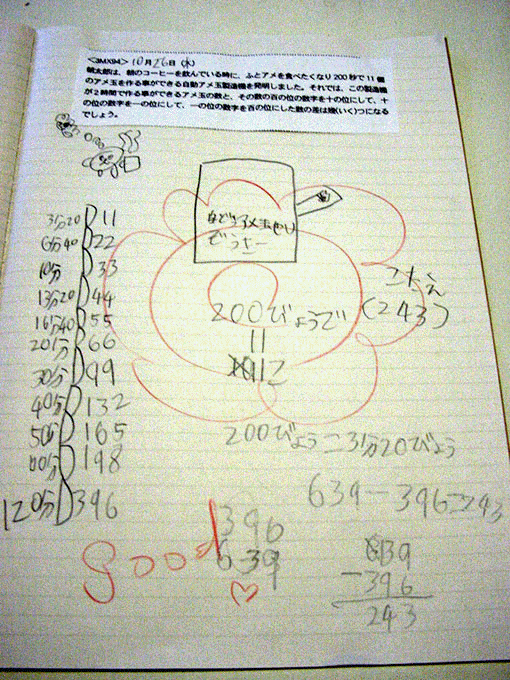 <3MX94> 10月26日(水)
朝太郎は、朝のコーヒーを飲んでいる時に、ふとアメを食べたくなり200秒で11個
のアメ玉を作る事ができる自動アメ玉製造機を発明しました。それでは、この製造機
が2時間で作る事ができるアメ玉の数と、その数の百の位の数字を十の位にして、十
の位の数字を一の位にして、一の位の数字を百の位にした数の差は幾(いく)つになる
でしょう。
アメ玉せい
ぞうきー
3分20 11
6分40 22
10分 33
13分20 44
16分40 55
20分 66
30分 99
40分 132
50分 165
60分 198
120分 396
こたえ
(243)
200びょうで
11
200びょう=3分20びょう
639-396=243
396
639
good
639
-396
243